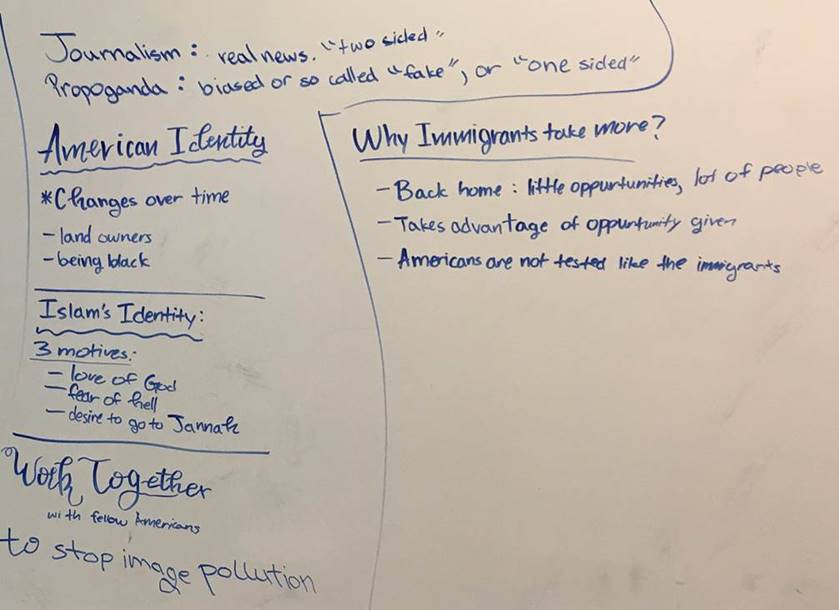 Journalism: real news. "two sided"
Propoganda: biased or so called "fake", or "one sided"
American Identity
*Changes over time
- land owners
- being black
Islam's Identity:
3 motives:
- love of God
- fear of hell
- desire to go to Jannah
Work Together
with fellow Americans
to stop image pollution
Why Immigrants take more?
- Back home: little oppurtunities, lot of people
- Takes advantage of oppurtunity given
- Americans are not tested like the immigrants